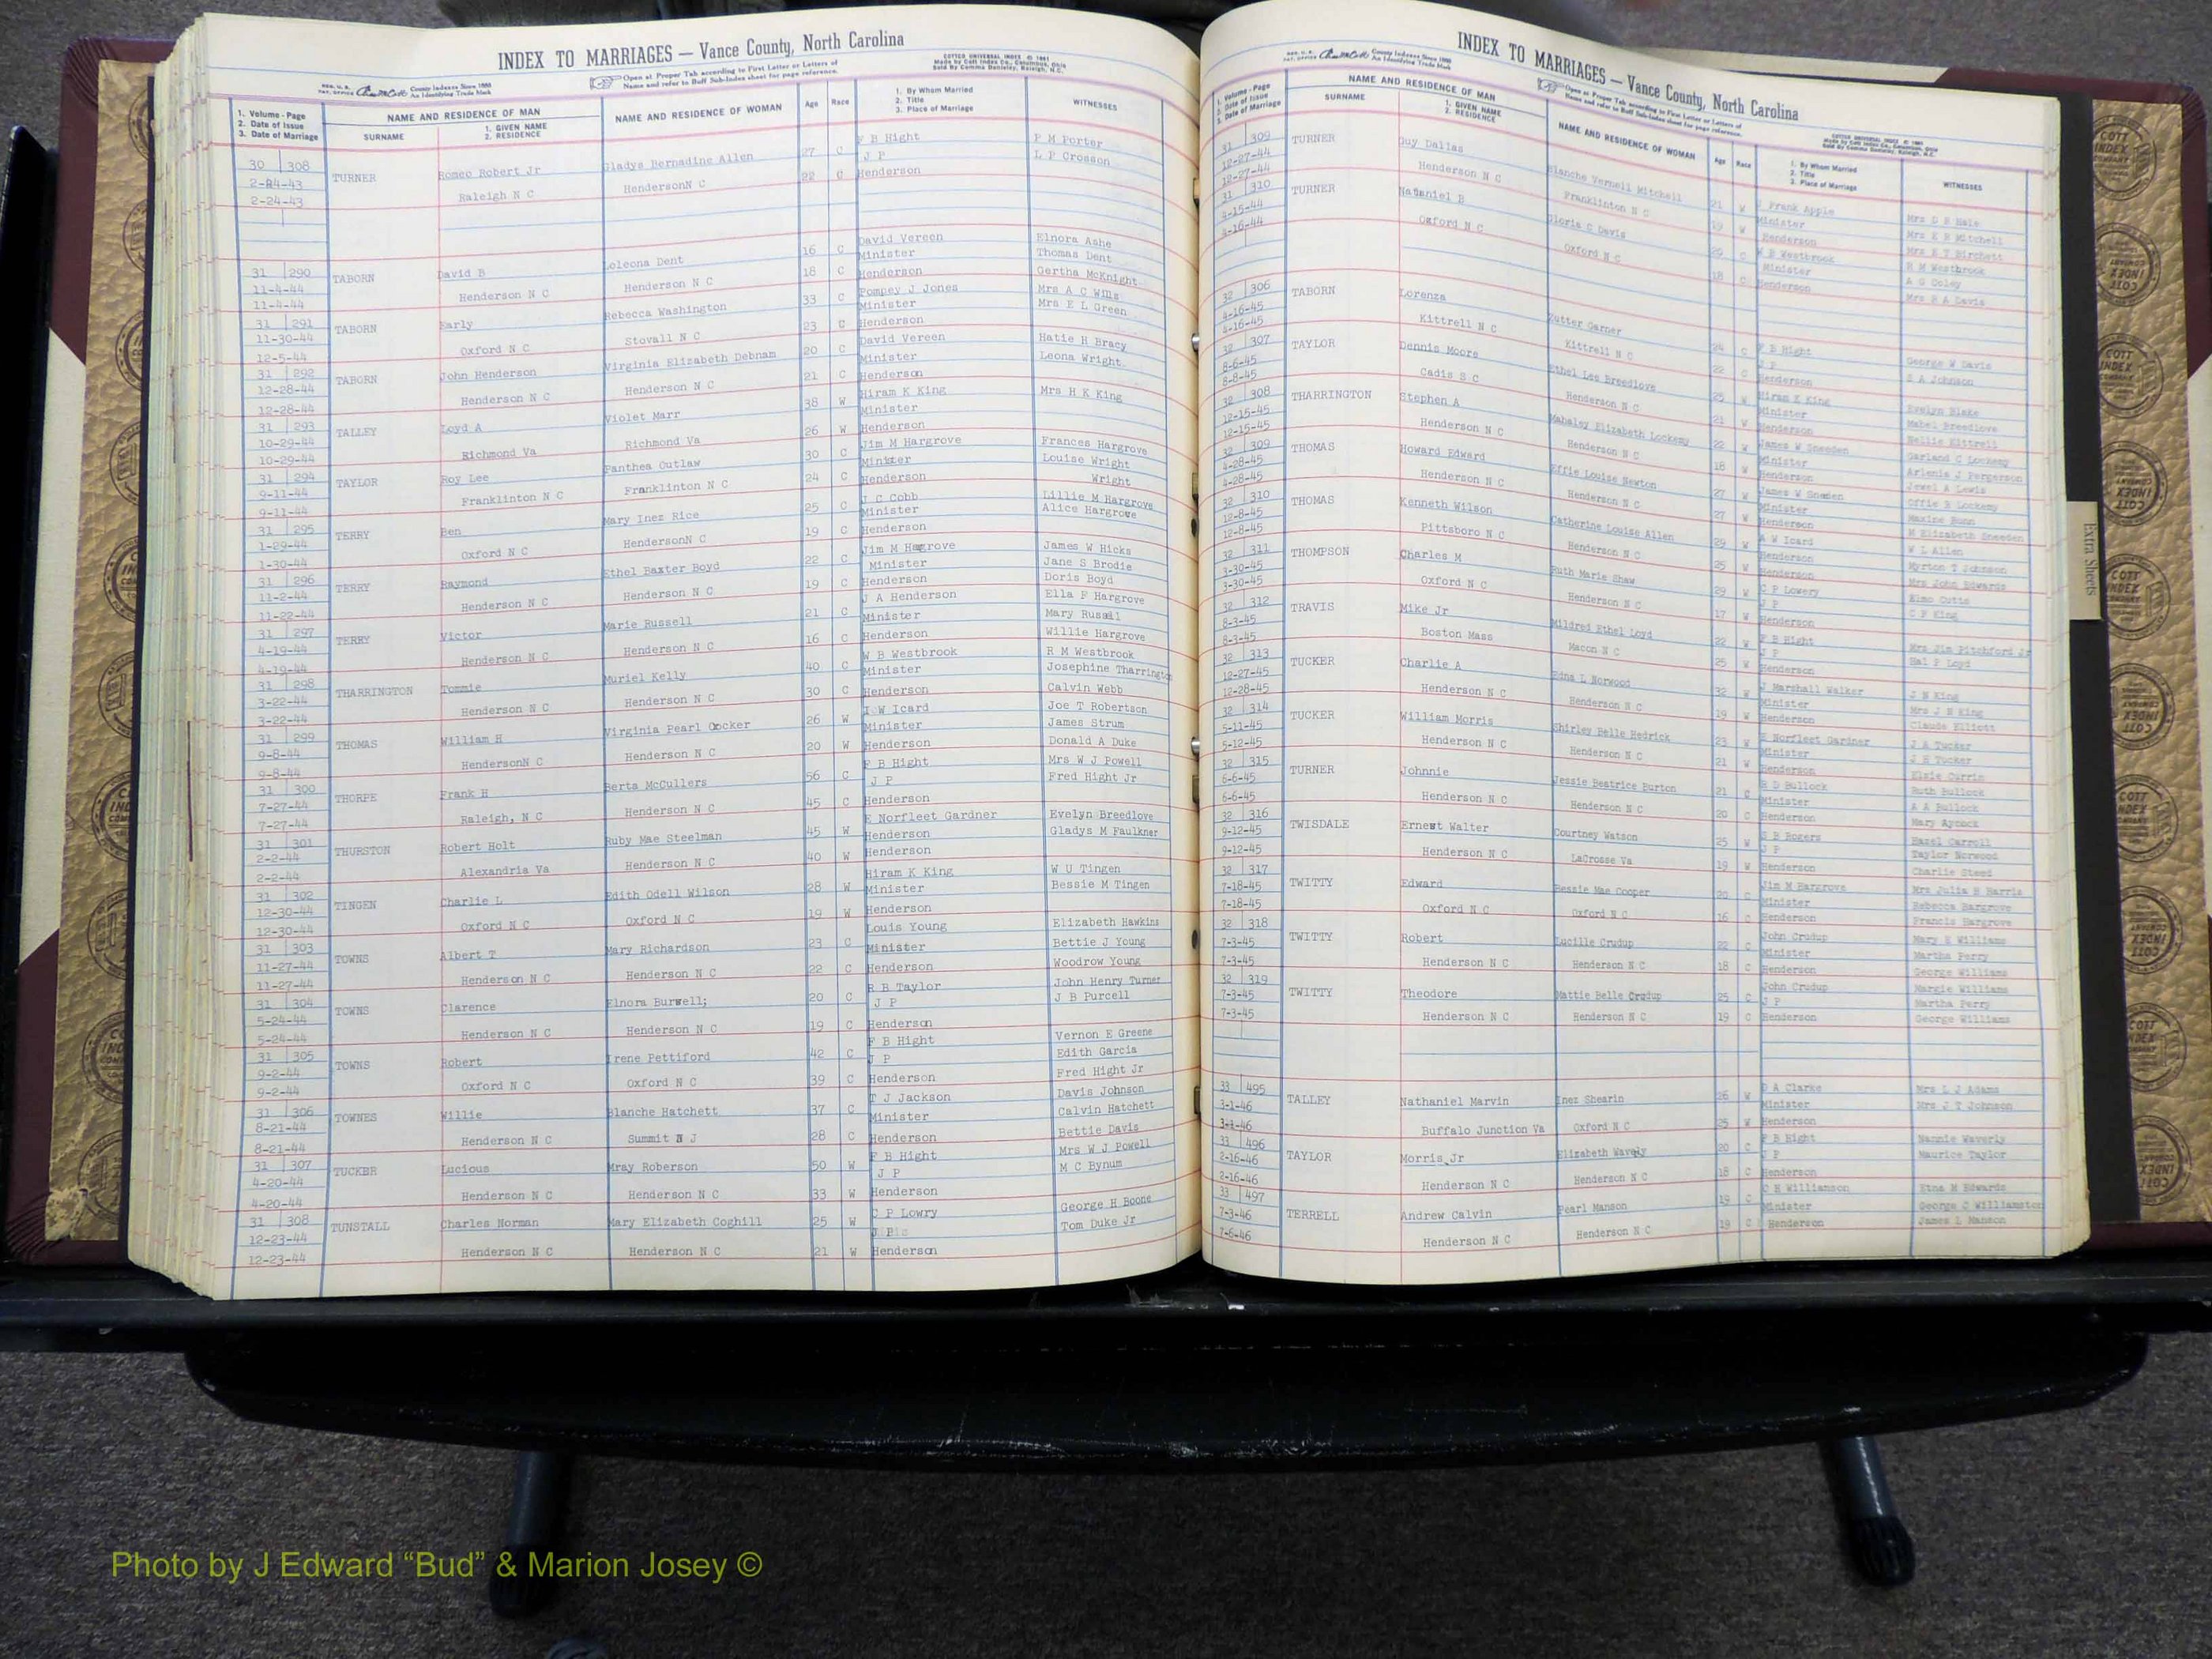 INDEX TO MARRIAGES — Vance County, North Carolina
Open at Proper Tab according to First Letter or Letters of
Name and refer to Buff Sub-Index sheet for page reference.
COTT'S UNIVERSAL INDEX
1. Volume - Page
2. Date of Issue
3. Date of Marriage
NAME AND RESIDENCE OF MAN
SURNAME
1. GIVEN NAME
2. RESIDENCE
NAME AND RESIDENCE OF WOMAN
Age
Race
1. By Whom Married
2. Title
3. Place of Marriage
WITNESSES
30 308 TURNER Romeo Robert Jr Gladys Bernadine Allen 27 C F B Hight P M Porter
2-24-43 Raleigh N C HendersonN C 22 C J P L P Crosson
2-24-43 Henderson
31 290 TABORN David B Loleona Dent 16 C David Vereen Elnora Ashe
11-4-44 Henderson N C Henderson N C 18 C Minister Thomas Dent
11-4-44 Henderson Gertha McKnight
31 291 TABORN Early Rebecca Washington 33 C Pompey J Jones Mrs A C Wms
11-30-44 Oxford N C Stovall N C 23 C Minister Mrs E L Green
12-5-44 Henderson
31 292 TABORN John Henderson Virginia Elizabeth Debnam 20 C David Vereen Hatie H Bracy
12-28-44 Henderson N C Henderson N C 21 C Minister Leona Wright
12-28-44 Henderson
31 293 TALLEY Loyd A Violet Marr 38 W Hiram K King Mrs H K King
10-29-44 Richmond Va Richmond Va 26 W Minister
10-29-44 Henderson
31 294 TAYLOR Roy Lee Panthea Outlaw 30 C Jim M Hargrove Frances Hargrove
9-11-44 Franklinton N C Franklinton N C 24 C Minister Louise Wright
9-11-44 Henderson Wright
31 295 TERRY Ben Mary Inez Rice 25 C J C Cobb Lillie M Hargrove
1-29-44 Oxford N C HendersonN C 19 C Minister Alice Hargrove
1-30-44 Henderson
31 296 TERRY Raymond Ethel Baxter Boyd 22 C Jim M Hargrove James W Hicks
11-2-44 Henderson N C Henderson N C 19 C Minister Jane S Brodie
11-22-44 Henderson Doris Boyd
31 297 TERRY Victor Marie Russell 21 C J A Henderson Ella F Hargrove
4-19-44 Henderson N C Henderson N C 16 C Minister Mary Russell
4-19-44 Henderson Willie Hargrove
31 298 THARRINGTON Tommie Muriel Kelly 40 C W B Westbrook R M Westbrook
3-22-44 Henderson N C Henderson N C 30 C Minister Josephine Tharrington
3-22-44 Henderson Calvin Webb
31 299 THOMAS William H Virginia Pearl Cocker 26 W I W Icard Joe T Robertson
9-8-44 HendersonN C Henderson N C 20 W Minister James Strum
9-8-44 Henderson Donald A Duke
31 300 THORPE Frank H Berta McCullers 56 C F B Hight Mrs W J Powell
7-27-44 Raleigh, N C Henderson N C 45 C J P Fred Hight Jr
7-27-44 Henderson
31 301 THURSTON Robert Holt Ruby Mae Steelman 45 W E Norfleet Gardner Evelyn Breedlove
2-2-44 Alexandria Va Henderson N C 40 W Henderson Gladys M Faulkner
2-2-44 Henderson
31 302 TINGEN Charlie L Edith Odell Wilson 28 W Hiram K King W U Tingen
12-30-44 Oxford N C Oxford N C 19 W Minister Bessie M Tingen
12-30-44 Henderson
31 303 TOWNS Albert T Mary Richardson 23 C Louis Young Elizabeth Hawkins
11-27-44 Henderson N C Henderson N C 22 C Minister Bettie J Young
11-27-44 Henderson Woodrow Young
31 304 TOWNS Clarence Elnora Burwell; 20 C R B Taylor John Henry Turner
5-24-44 Henderson N C Henderson N C 19 C J P J B Purcell
5-24-44 Henderson
31 305 TOWNS Robert Irene Pettiford 42 C F B Hight Vernon E Greene
9-2-44 Oxford N C Oxford N C 39 C J P Edith Garcia
9-2-44 Henderson Fred Hight Jr
31 306 TOWNES Willie Blanche Hatchett 37 C T J Jackson Davis Johnson
8-21-44 Henderson N C Summit N J 28 C Minister Calvin Hatchett
8-21-44 Henderson Bettie Davis
31 307 TUCKER Lucious Mray Roberson 50 W F B Hight Mrs W J Powell
4-20-44 Henderson N C Henderson N C 33 W J P M C Bynum
4-20-44 Henderson
31 308 TUNSTALL Charles Norman Mary Elizabeth Coghill 25 W C P Lowry George H Boone
12-23-44 Henderson N C Henderson N C 21 W J P Tom Duke Jr
12-23-44 Henderson
INDEX TO MARRIAGES — Vance County, North Carolina
Open at Proper Tab according to First Letter or Letters of
Name and refer to Buff Sub-Index sheet for page reference.
1. Volume - Page
2. Date of Issue
3. Date of Marriage
NAME AND RESIDENCE OF MAN
SURNAME
1. GIVEN NAME
2. RESIDENCE
NAME AND RESIDENCE OF WOMAN
Age
Race
1. By Whom Married
2. Title
3. Place of Marriage
WITNESSES
31 309 TURNER Guy Dallas Blanche Vernell Mitchell 21 W Frank Apple Mrs D B Hale
12-27-44 Henderson N C Franklinton N C 19 W Minister Mrs E R Mitchell
12-27-44 Henderson Mrs E T Birchett
31 310 TURNER Nathaniel B Gloria C Davis 29 C W B Westbrook R M Westbrook
4-15-44 Oxford N C Oxford N C 18 C Minister A G Coley
4-16-44 Henderson Mrs R A Davis
32 306 TABORN Lorenza Zutter Garner 24 C F B Hight George W Davis
4-16-45 Kittrell N C Kittrell N C 22 C J P S A Johnson
4-16-45 Henderson
32 307 TAYLOR Dennis Moore Ethel Lee Breedlove 25 W Hiram K King Evelyn Blake
8-6-45 Cadis S C Henderson N C 21 W Minister Mabel Breedlove
8-8-45 Henderson Nellie Kittrell
32 308 THARRINGTON Stephen A Mahaley Elizabeth Lockemy 22 W James W Sneeden Garland C Lockemy
12-15-45 Henderson N C Henderson N C 18 W Minister Arlenia J Pergerson
12-15-45 Henderson Jewel A Lewis
32 309 THOMAS Howard Edward Effie Louise Newton 27 W James W Sneden Offie B Lockemy
4-28-45 Henderson N C Henderson N C 27 W Minister Maxine Bunn
4-28-45 Henderson M Elizabeth Sneeden
32 310 THOMAS Kenneth Wilson Catherine Louise Allen 29 W A W Icard W L Allen
12-8-45 Pittsboro N C Henderson N C 25 W Henderson Myrton T Johnson
12-8-45 Henderson Mrs John Edwards
32 311 THOMPSON Charles M Ruth Marie Shaw 29 W C P Lowery Elmo Cutts
3-30-45 Oxford N C Henderson N C 17 W J P C P King
3-30-45 Henderson
32 312 TRAVIS Mike Jr Mildred Ethel Loyd 22 W F B Hight Mrs Jim Pitchford Jr
8-3-45 Boston Mass Macon N C 25 W J P Hal P Loyd
8-3-45 Henderson
32 313 TUCKER Charlie A Edna L Norwood 32 W J Marshall Walker J N King
12-27-45 Henderson N C Henderson N C 19 W Minister Mrs J N King
12-28-45 Henderson Claude Elliott
32 314 TUCKER William Morris Shirley Belle Hedrick 23 W E Norfleet Gardner J A Tucker
5-11-45 Henderson N C Henderson N C 21 W Minister J H Tucker
5-12-45 Henderson Elsie Currin
32 315 TURNER Johnnie Jessie Beatrice Burton 21 C R D Bullock Ruth Bullock
6-6-45 Henderson N C Henderson N C 20 C Minister A A Bullock
6-6-45 Henderson Mary Aycock
32 316 TWISDALE Ernest Walter Courtney Watson 25 W S B Rogers Hazel Carroll
9-12-45 Henderson N C LaCrosse Va 19 W J P Taylor Norwood
9-12-45 Henderson Charlie Steed
32 317 TWITTY Edward Bessie Mae Cooper 20 C Jim M Hargrove Mrs Julia H Harris
7-18-45 Oxford N C Oxford N C 16 C Minister Rebecca Hargrove
7-18-45 Henderson Francis Hargrove
32 318 TWITTY Robert Lucille Crudup 22 C John Crudup Mary E Williams
7-3-45 Henderson N C Henderson N C 18 C Minister Martha Perry
7-3-45 Henderson George Williams
32 319 TWITTY Theodore Mattie Belle Crudup 25 C John Crudup Margie Williams
7-3-45 Henderson N C Henderson N C 19 C J P Martha Perry
7-3-45 Henderson George Williams
33 495 TALLEY Nathaniel Marvin Inez Shearin 26 W D A Clarke Mrs L J Adams
3-1-46 Buffalo Junction Va Oxford N C 25 W Minister Mrs J T Johnson
3-1-46 Henderson
33 496 TAYLOR Morris Jr Elizabeth Wavely 20 C F B Hight Nannie Waverly
2-16-46 Henderson N C Henderson N C 18 C J P Maurice Taylor
2-16-46 Henderson
33 497 TERRELL Andrew Calvin Pearl Manson 19 C C H Williamson Etna M Edwards
7-3-46 Henderson N C Henderson N C 19 C Minister George C Williamston
7-6-46 Henderson James L Manson
Extra Sheets
COTT
INDEX
COMPANY
Photo by J Edward “Bud” & Marion Josey ©